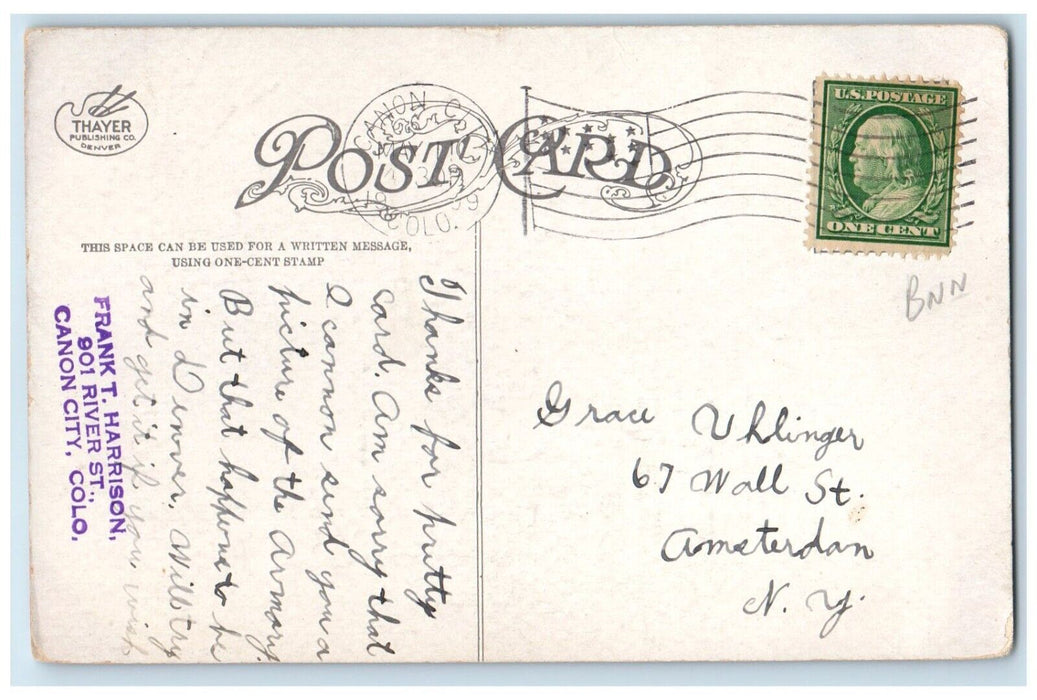 THAYER
PUBLISHING CO.
DENVER
POST CARD
CANON C
COLO.
U.S. POSTAGE
ONE CENT
THIS SPACE CAN BE USED FOR A WRITTEN MESSAGE,
USING ONE-CENT STAMP
BNN
Thanks for pretty
card. Am sorry that
I cannon send you a
picture of the Armory.
But that happens to be
in Denver. Will try
and get it if you wish
FRANK T. HARRISON,
901 RIVER ST.,
CANON CITY, COLO.
Grace Uhlinger
67 Wall St.
Amsterdan
N. Y.